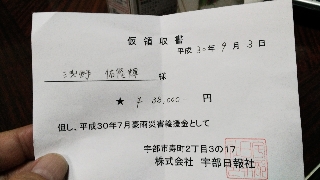 仮領収書
平成 30年 9月 3日
様
★ ¥ 38,000 円
但し、平成30年7月豪雨災害義援金として
宇部市寿町2丁目3の17
株式会社 宇部日報社